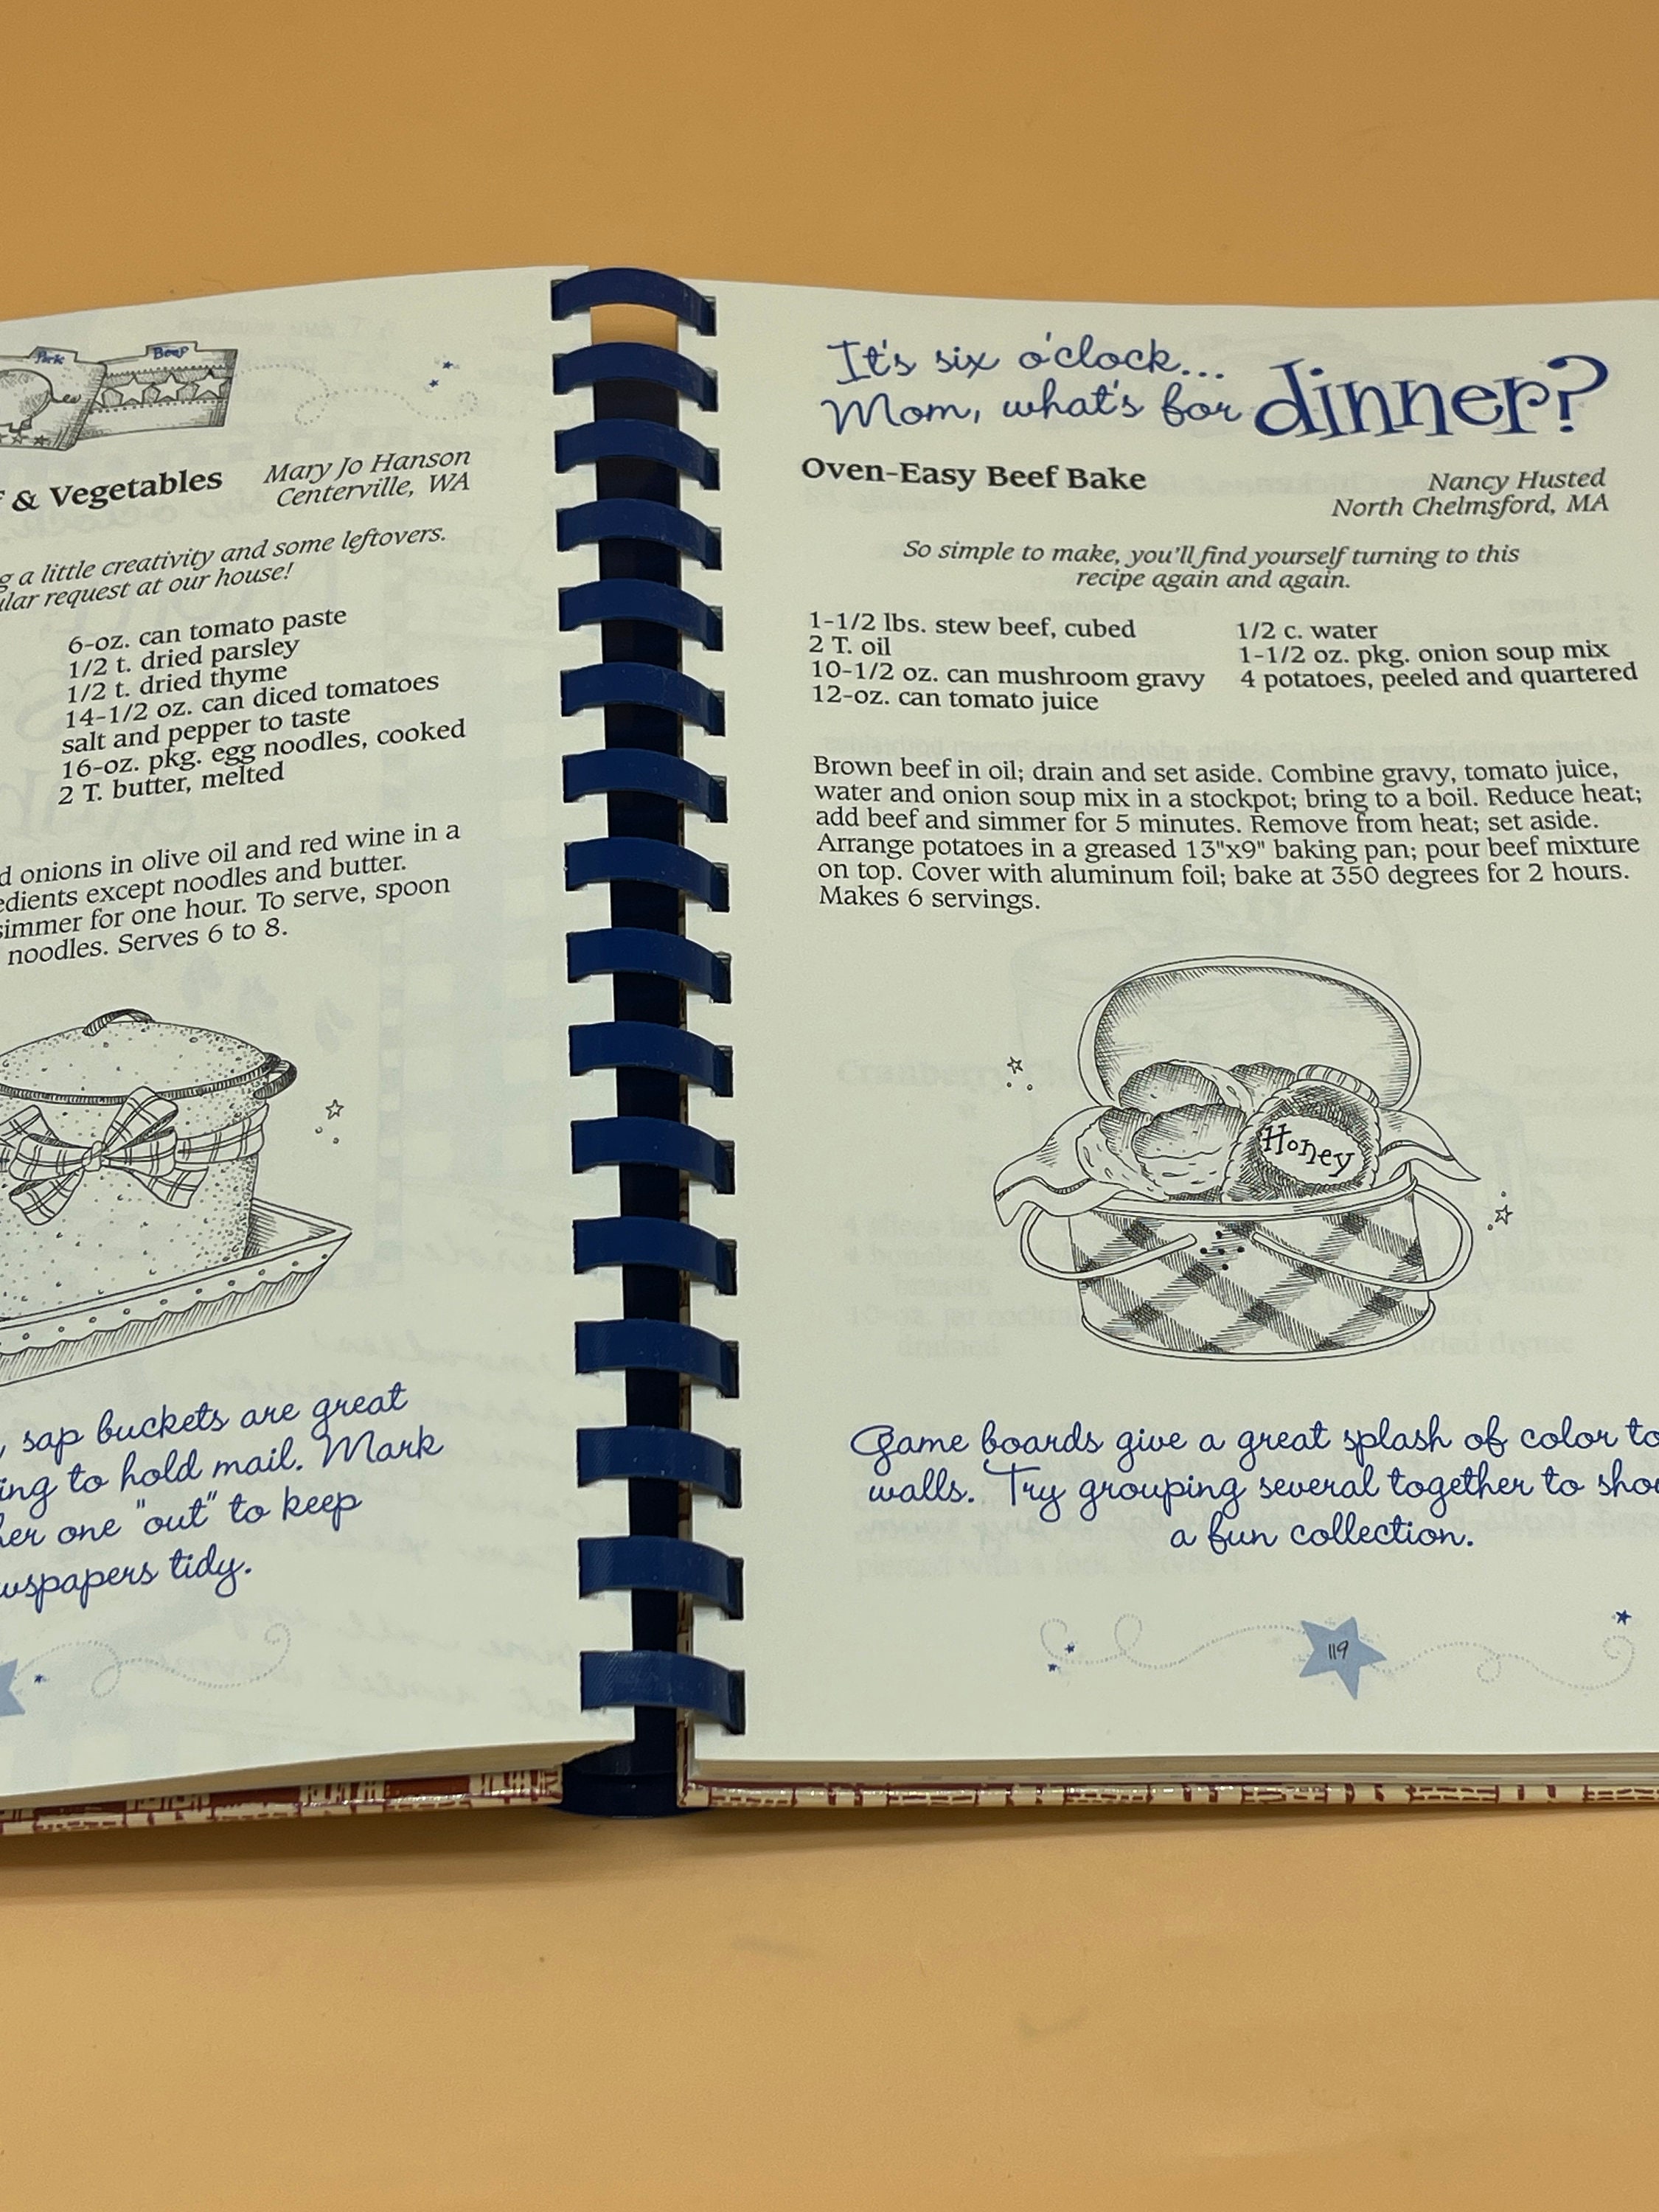 Pork Beef
& Vegetables
Mary Jo Hanson
Centerville, WA
a little creativity and some leftovers.
request at our house!
6-oz. can tomato paste
1/2 t. dried parsley
1/2 t. dried thyme
14-1/2 oz. can diced tomatoes
salt and pepper to taste
16-oz. pkg. egg noodles, cooked
2 T. butter, melted
onions in olive oil and red wine in a
except noodles and butter.
simmer for one hour. To serve, spoon
noodles. Serves 6 to 8.
sap buckets are great
to hold mail. Mark
one "out" to keep
tidy.
It's six o'clock...
Mom, what's for dinner?
Oven-Easy Beef Bake
Nancy Husted
North Chelmsford, MA
So simple to make, you'll find yourself turning to this
recipe again and again.
1-1/2 lbs. stew beef, cubed
2 T. oil
10-1/2 oz. can mushroom gravy
12-oz. can tomato juice
1/2 c. water
1-1/2 oz. pkg. onion soup mix
4 potatoes, peeled and quartered
Brown beef in oil; drain and set aside. Combine gravy, tomato juice,
water and onion soup mix in a stockpot; bring to a boil. Reduce heat;
add beef and simmer for 5 minutes. Remove from heat; set aside.
Arrange potatoes in a greased 13"x9" baking pan; pour beef mixture
on top. Cover with aluminum foil; bake at 350 degrees for 2 hours.
Makes 6 servings.
Honey
Game boards give a great splash of color to
walls. Try grouping several together to
a fun collection.
119